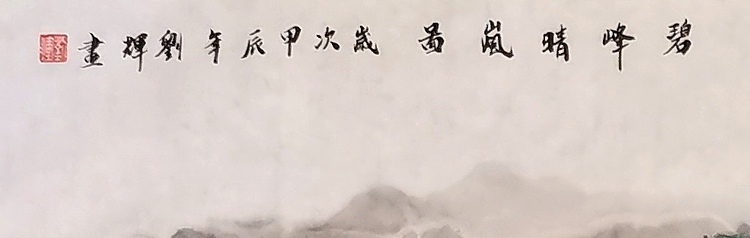 碧峰晴嵐啚歲次甲辰年劉輝畫